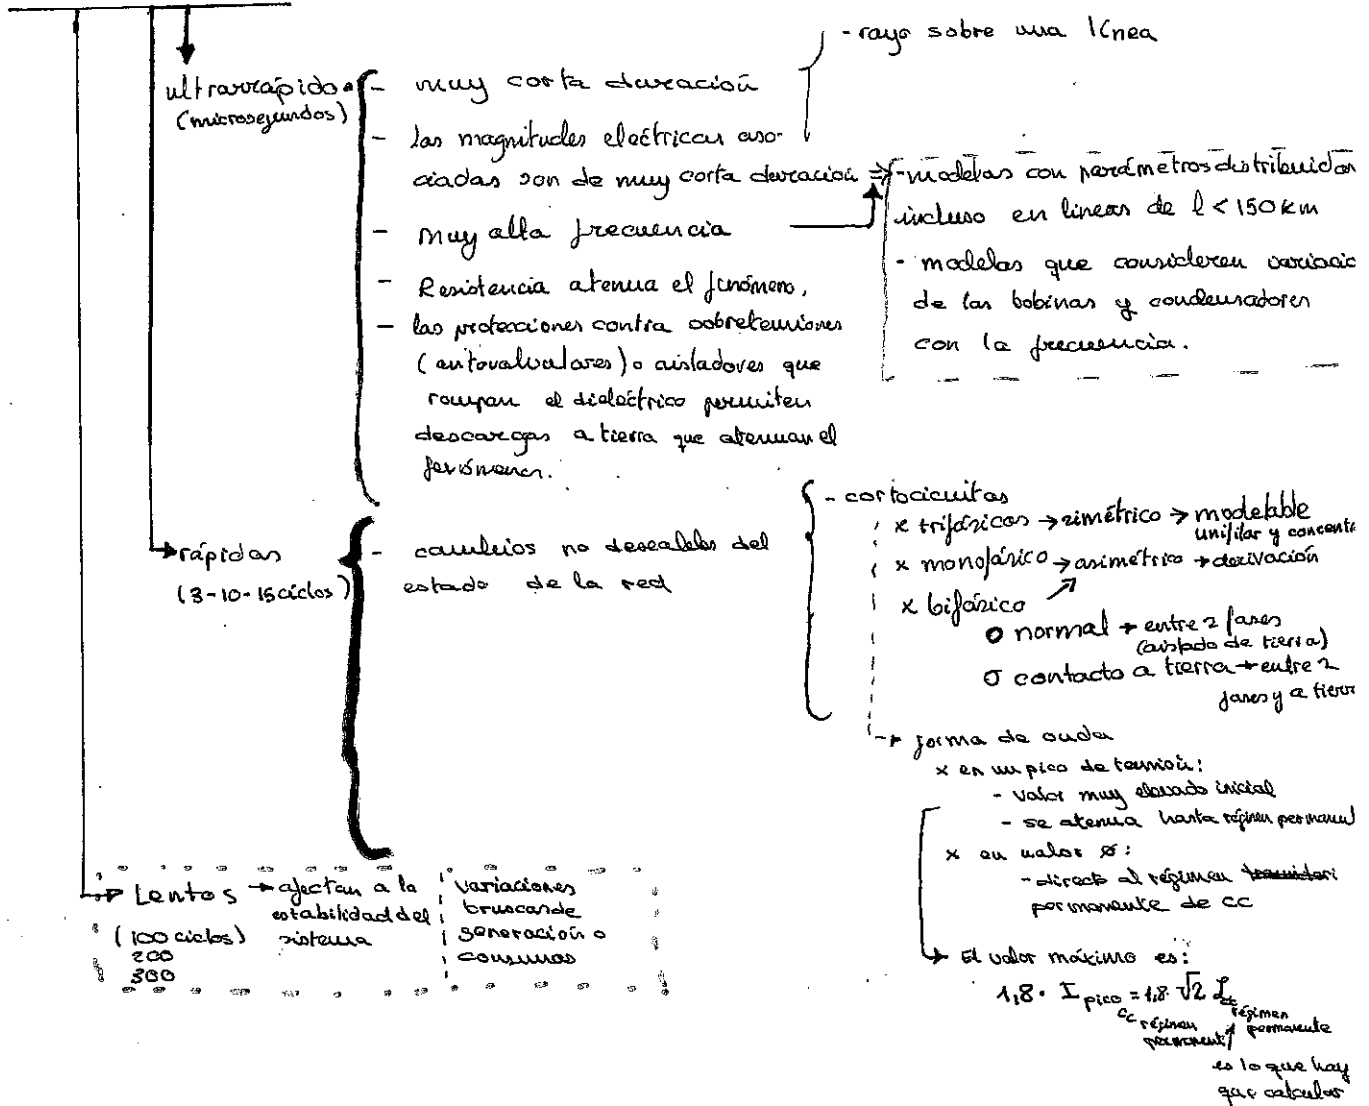 - rayo sobre una línea
ultrarrápidos
(microsegundos)
- muy corta duración
- las magnitudes eléctricas aso-
ciadas son de muy corta duración ⇒
- Muy alta frecuencia →
- Resistencia atenua el fenómeno.
- las protecciones contra sobretensiones
(autovalvulares) o aisladores que
rompan el dieléctrico permiten
descargas a tierra que atenuan el
fenómeno.
- modelos con parámetros distribuidos
incluso en lineas de l < 150 km
- modelos que consideren variacio
de las bobinas y condensadores
con la frecuencia.
rápidas
(3-10-15 ciclos)
- cambios no deseables del
estado de la red
- cortocicuitos
x trifásicos → simétrico → modelable
unifilar y concent
x monofásico → asimétrico → derivación
x bifásico
o normal → entre 2 fases
(aislado de tierra)
o contacto a tierra → entre 2
fases y a tierr
→ forma de onda
x en un pico de tensión:
- valor muy elevado inicial
- se atenua hasta régimen permanent
x en valor ø:
- directo al régimen
permanente de cc
→ El valor máximo es:
1,8 · I pico = 1,8 √2 I
cc régimen permanente
régimen permanente
es lo que hay
que calcular
→ Lentos → afectan a la
estabilidad del
sistema
(100 ciclos)
200
300
variaciones
bruscas de
generación o
consumos